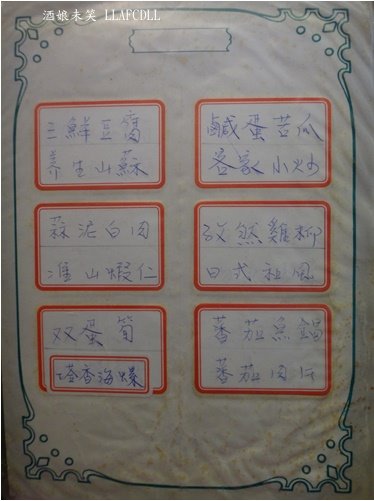 酒娘未笑 LLAFCDLL
三鮮豆腐
养生山蘇
鹹蛋苦瓜
客家小炒
蒜泥白肉
淮山蝦仁
孜然雞柳
日式祖風
双蛋筍
塔香海螺
蕃茄魚鍋
蕃茄肉片